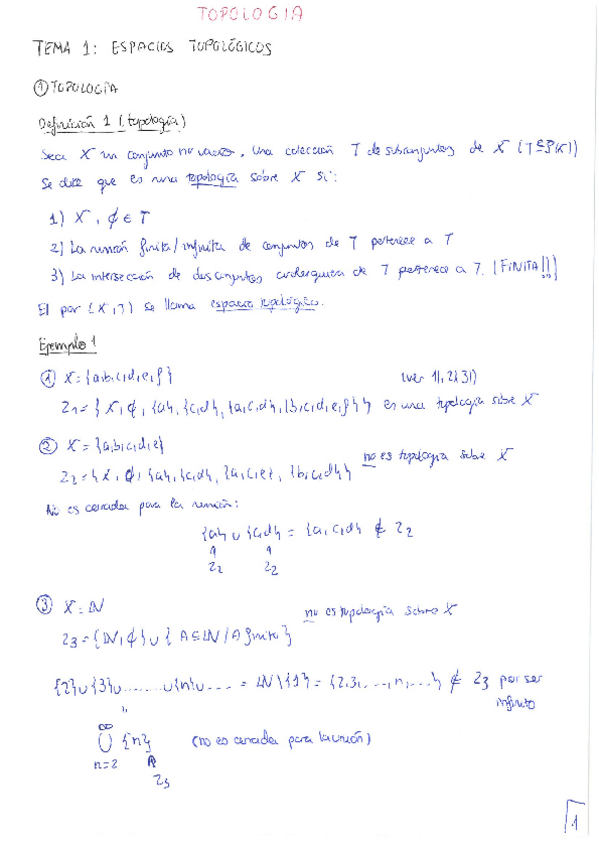 TOPOLOGIA
TEMA 1: ESPACIOS TOPOLÓGICOS
① TOPOLOGÍA
Definición 1 (topología)
Sea X un conjunto no vacío, una colección T de subconjuntos de X (T⊆P(X))
se dice que es una topología sobre X si:
1) X, ∅ ∈ T
2) La unión finita/infinita de conjuntos de T pertenece a T
3) La intersección de dos conjuntos cualesquiera de T pertenece a T. (FINITA!!)
El par (X,T) se llama espacio topológico.
Ejemplo 1
① X={a,b,c,d,e,f} (ver 1),2),3))
Z₁={X,∅,{a},{c,d},{a,c,d},{b,c,d,e,f}} es una topología sobre X
② X={a,b,c,d,e} no es topología sobre X
Z₂={X,∅,{a},{c,d},{a,c,e},{b,c,d}}
No es cerrada para la unión:
{a}∪{c,d}={a,c,d} ∉ Z₂
Z₂ Z₂
③ X=ℕ no es topología sobre X
Z₃={ℕ,∅}∪{A⊆ℕ/A finito}
{2}∪{3}∪.......∪{n}∪.... = ℕ\{1}={2,3,...,n,...} ∉ Z₃ por ser
infinito
∞
∪ {n} (no es cerrada para la unión)
n=2
Z₃
1